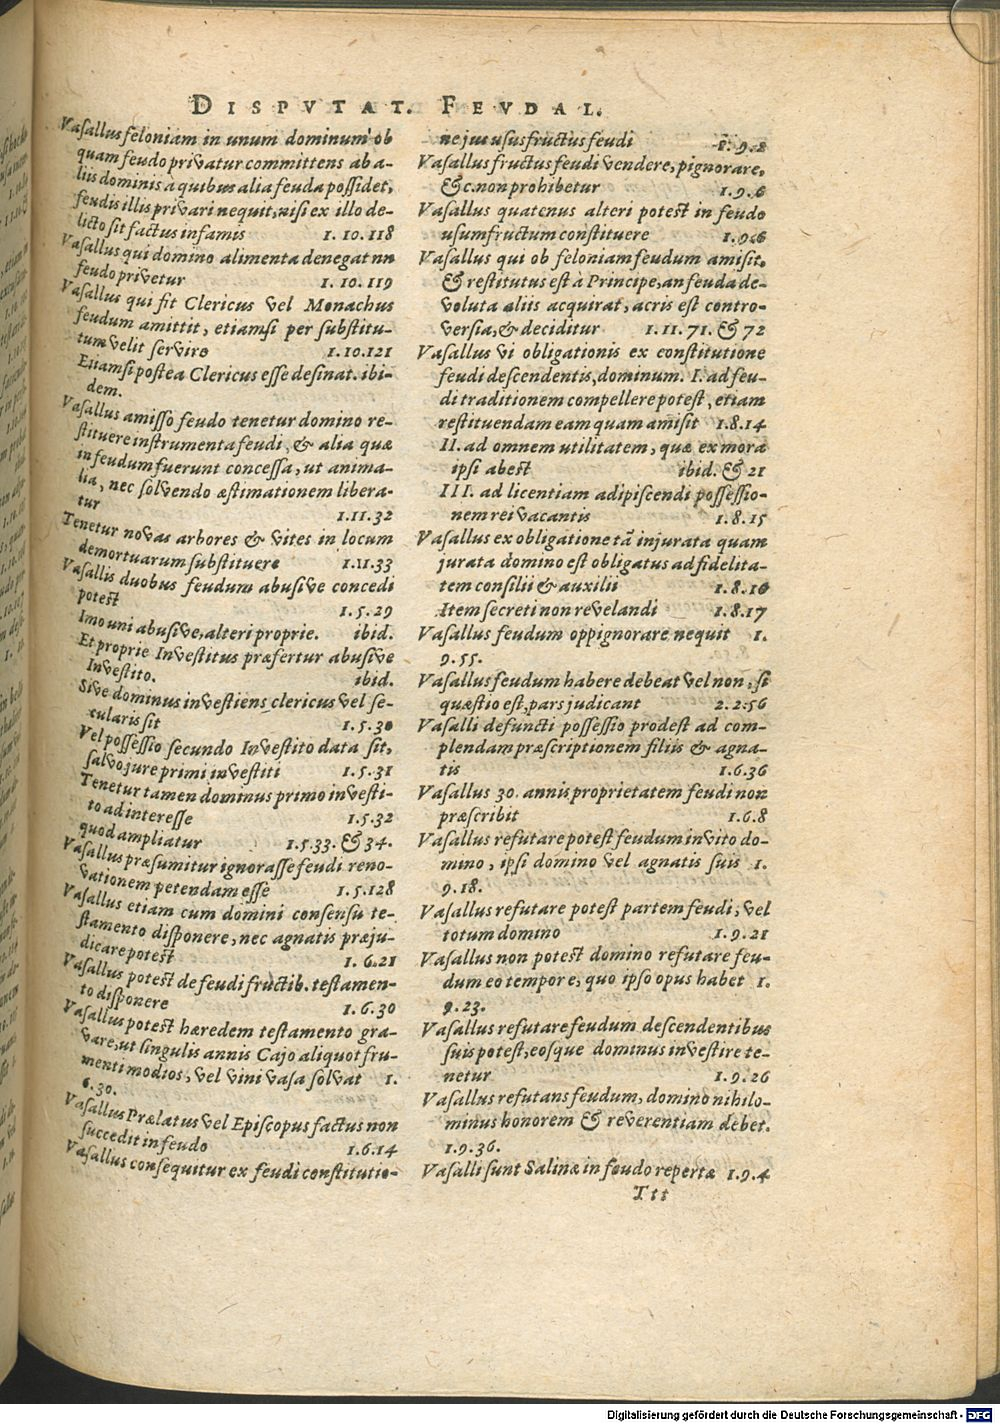 DISPVTAT. FEVDAL.
Vasallus feloniam in unum dominum ob
quam feudo privatur committens ab a-
liis dominis a quibus alia feuda possidet,
feudis illis privari nequit, nisi ex illo de-
licto sit factus infamis 1. 10. 118
Vasallus qui domino alimenta denegat nn
feudo privetur 1. 10. 119
Vasallus qui fit Clericus vel Monachus
feudum amittit, etiamsi per substitu-
tum velit servire 1.10.121
Etiamsi postea Clericus esse desinat. ibi-
dem.
Vasallus amisso feudo tenetur domino re-
stituere instrumenta feudi, & alia quæ
in feudum fuerunt concessa, ut anima-
lia, nec solvendo æstimationem libera-
tur 1.11.32
Tenetur novas arbores & vites in locum
demortuarum substituere 1.11.33
Vasallis duobus feudum abusive concedi
potest 1.5.29
Imo uni abusive, alteri proprie. ibid.
Et proprie Investitus præfertur abusive
Investito. ibid.
Sive dominus investiens clericus vel se-
cularis sit 1.5.30
Vel possessio secundo Investito data sit,
salvo jure primi investiti 1.5.31
Tenetur tamen dominus primo investi-
to ad interesse 1.5.32
quod ampliatur 1.5.33. & 34.
Vasallus præsumitur ignorasse feudi reno-
vationem petendam esse 1.5.128
Vasallus etiam cum domini consensu te-
stamento disponere, nec agnatis præju-
dicare potest 1. 6.21
Vasallus potest de feudi fructib. testamen-
to disponere 1.6.30
Vasallus potest hæredem testamento gra-
vare, ut singulis annis Cajo aliquot fru-
menti modios, vel vini vasa solvat 1.
6.30.
Vasallus Prælatus vel Episcopus factus non
succedit in feudo 1.6.14
Vasallus consequitur ex feudi constitutio-
ne jus ususfructus feudi 1.9.2
Vasallus fructus feudi vendere, pignorare,
&c. non prohibetur 1.9.6
Vasallus quatenus alteri potest in feudo
usumfructum constituere 1.9.6
Vasallus qui ob feloniam feudum amisit,
& restitutus est à Principe, an feuda de-
voluta aliis acquirat, acris est contro-
versia, & deciditur 1.11.71. & 72
Vasallus vi obligationis ex constitutione
feudi descendentis, dominum. I. ad feu-
di traditionem compellere potest, etiam
restituendam eam quam amisit 1.8.14
II. ad omnem utilitatem, quæ ex mora
ipsi abest ibid. & 21
III. ad licentiam adipiscendi possessio-
nem rei vacantis 1.8.15
Vasallus ex obligatione tã injurata quam
jurata domino est obligatus ad fidelita-
tem consilii & auxilii 1.8.16
Item secreti non revelandi 1.8.17
Vasallus feudum oppignorare nequit 1.
9.55.
Vasallus feudum habere debeat vel non, si
quæstio est, pars judicant 2.2.56
Vasalli defuncti possessio prodest ad com-
plendam præscriptionem filiis & agna-
tis 1.6.36
Vasallus 30. annis proprietatem feudi non
præscribit 1.6.8
Vasallus refutare potest feudum invito do-
mino, ipsi domino vel agnatis suis 1.
9.18.
Vasallus refutare potest partem feudi, vel
totum domino 1.9.21
Vasallus non potest domino refutare feu-
dum eo tempore, quo ipso opus habet 1.
9.23.
Vasallus refutare feudum descendentibus
suis potest, eosque dominus investire te-
netur 1.9.26
Vasallus refutans feudum, domino nihilo-
minus honorem & reverentiam debet.
1.9.36.
Vasalli sunt Salinæ in feudo repertæ 1.9.4
Ttt
Digitalisierung gefördert durch die Deutsche Forschungsgemeinschaft - DFG